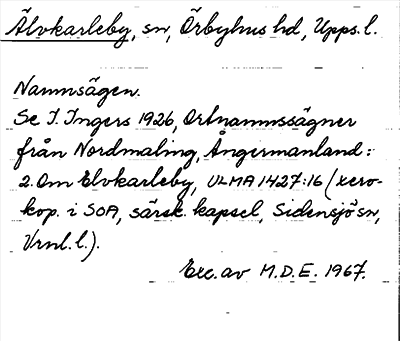 Älvkarleby, sn, Örbyhus hd, Upps. l.
Namnsägen.
Se I. Ingers 1926, Ortnamnssägner
från Nordmaling, Ångermanland:
2. Om Elvkarleby, ULMA 1427:16 (xero-
kop. i SOA, särsk. kapsel, Sidensjö sn,
Vrnl. l.).
Exc. av M.D.E. 1967.